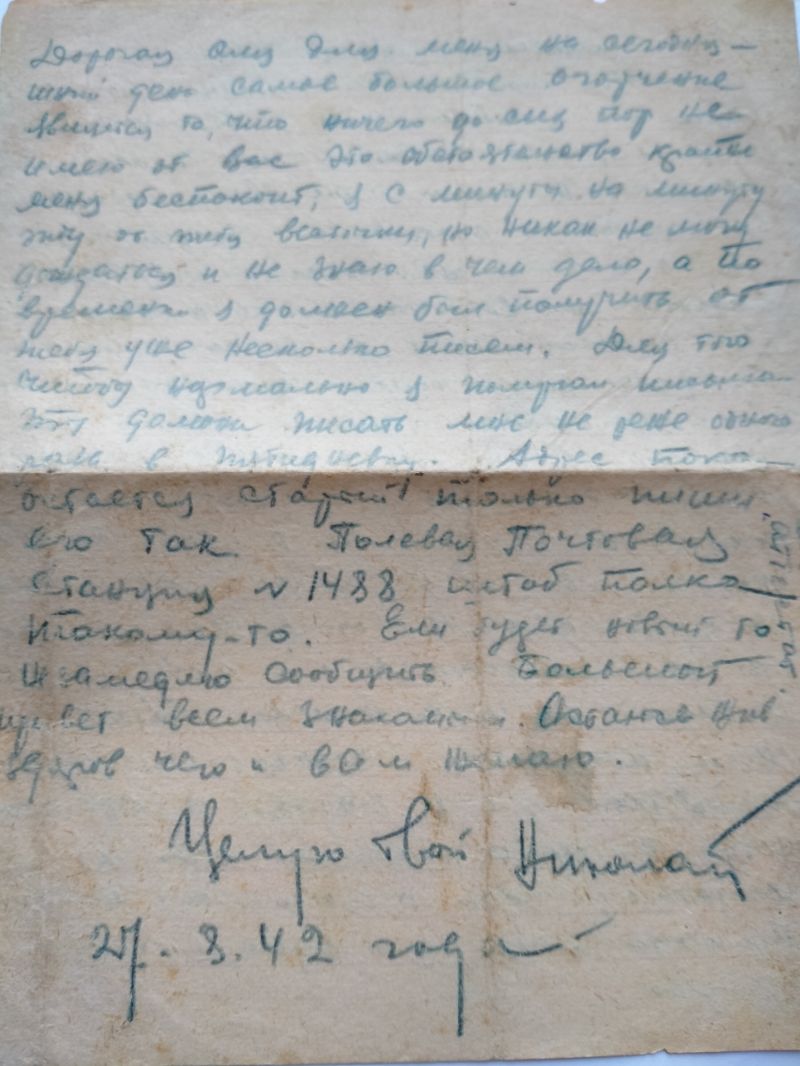 Дорогая Оля Для меня на сегодня-
шний день самое большое огорчение
является то, что ничего до сих пор не
имею от Вас это обстоятельство крайне
меня беспокоит, я с минуты на минуту
жду от тебя весточки, но никак не могу
дождаться и не знаю в чем дело, а по
времени я должен был получить от
тебя уже несколько писем. Для того
чтобы нормально я получал письма
ты должна писать мне не реже одного
раза в пятидневку. Адрес пока
остается старый только пиши
его так Полевая Почтовая
Станция N 1488 штаб полка
такому-то. Если будет новый то
незамедлю сообщить Большой
привет всем знакомым. Остаюсь жив
здоров чего и Вам желаю.
Целую твой Николай
27. 8. 42 года